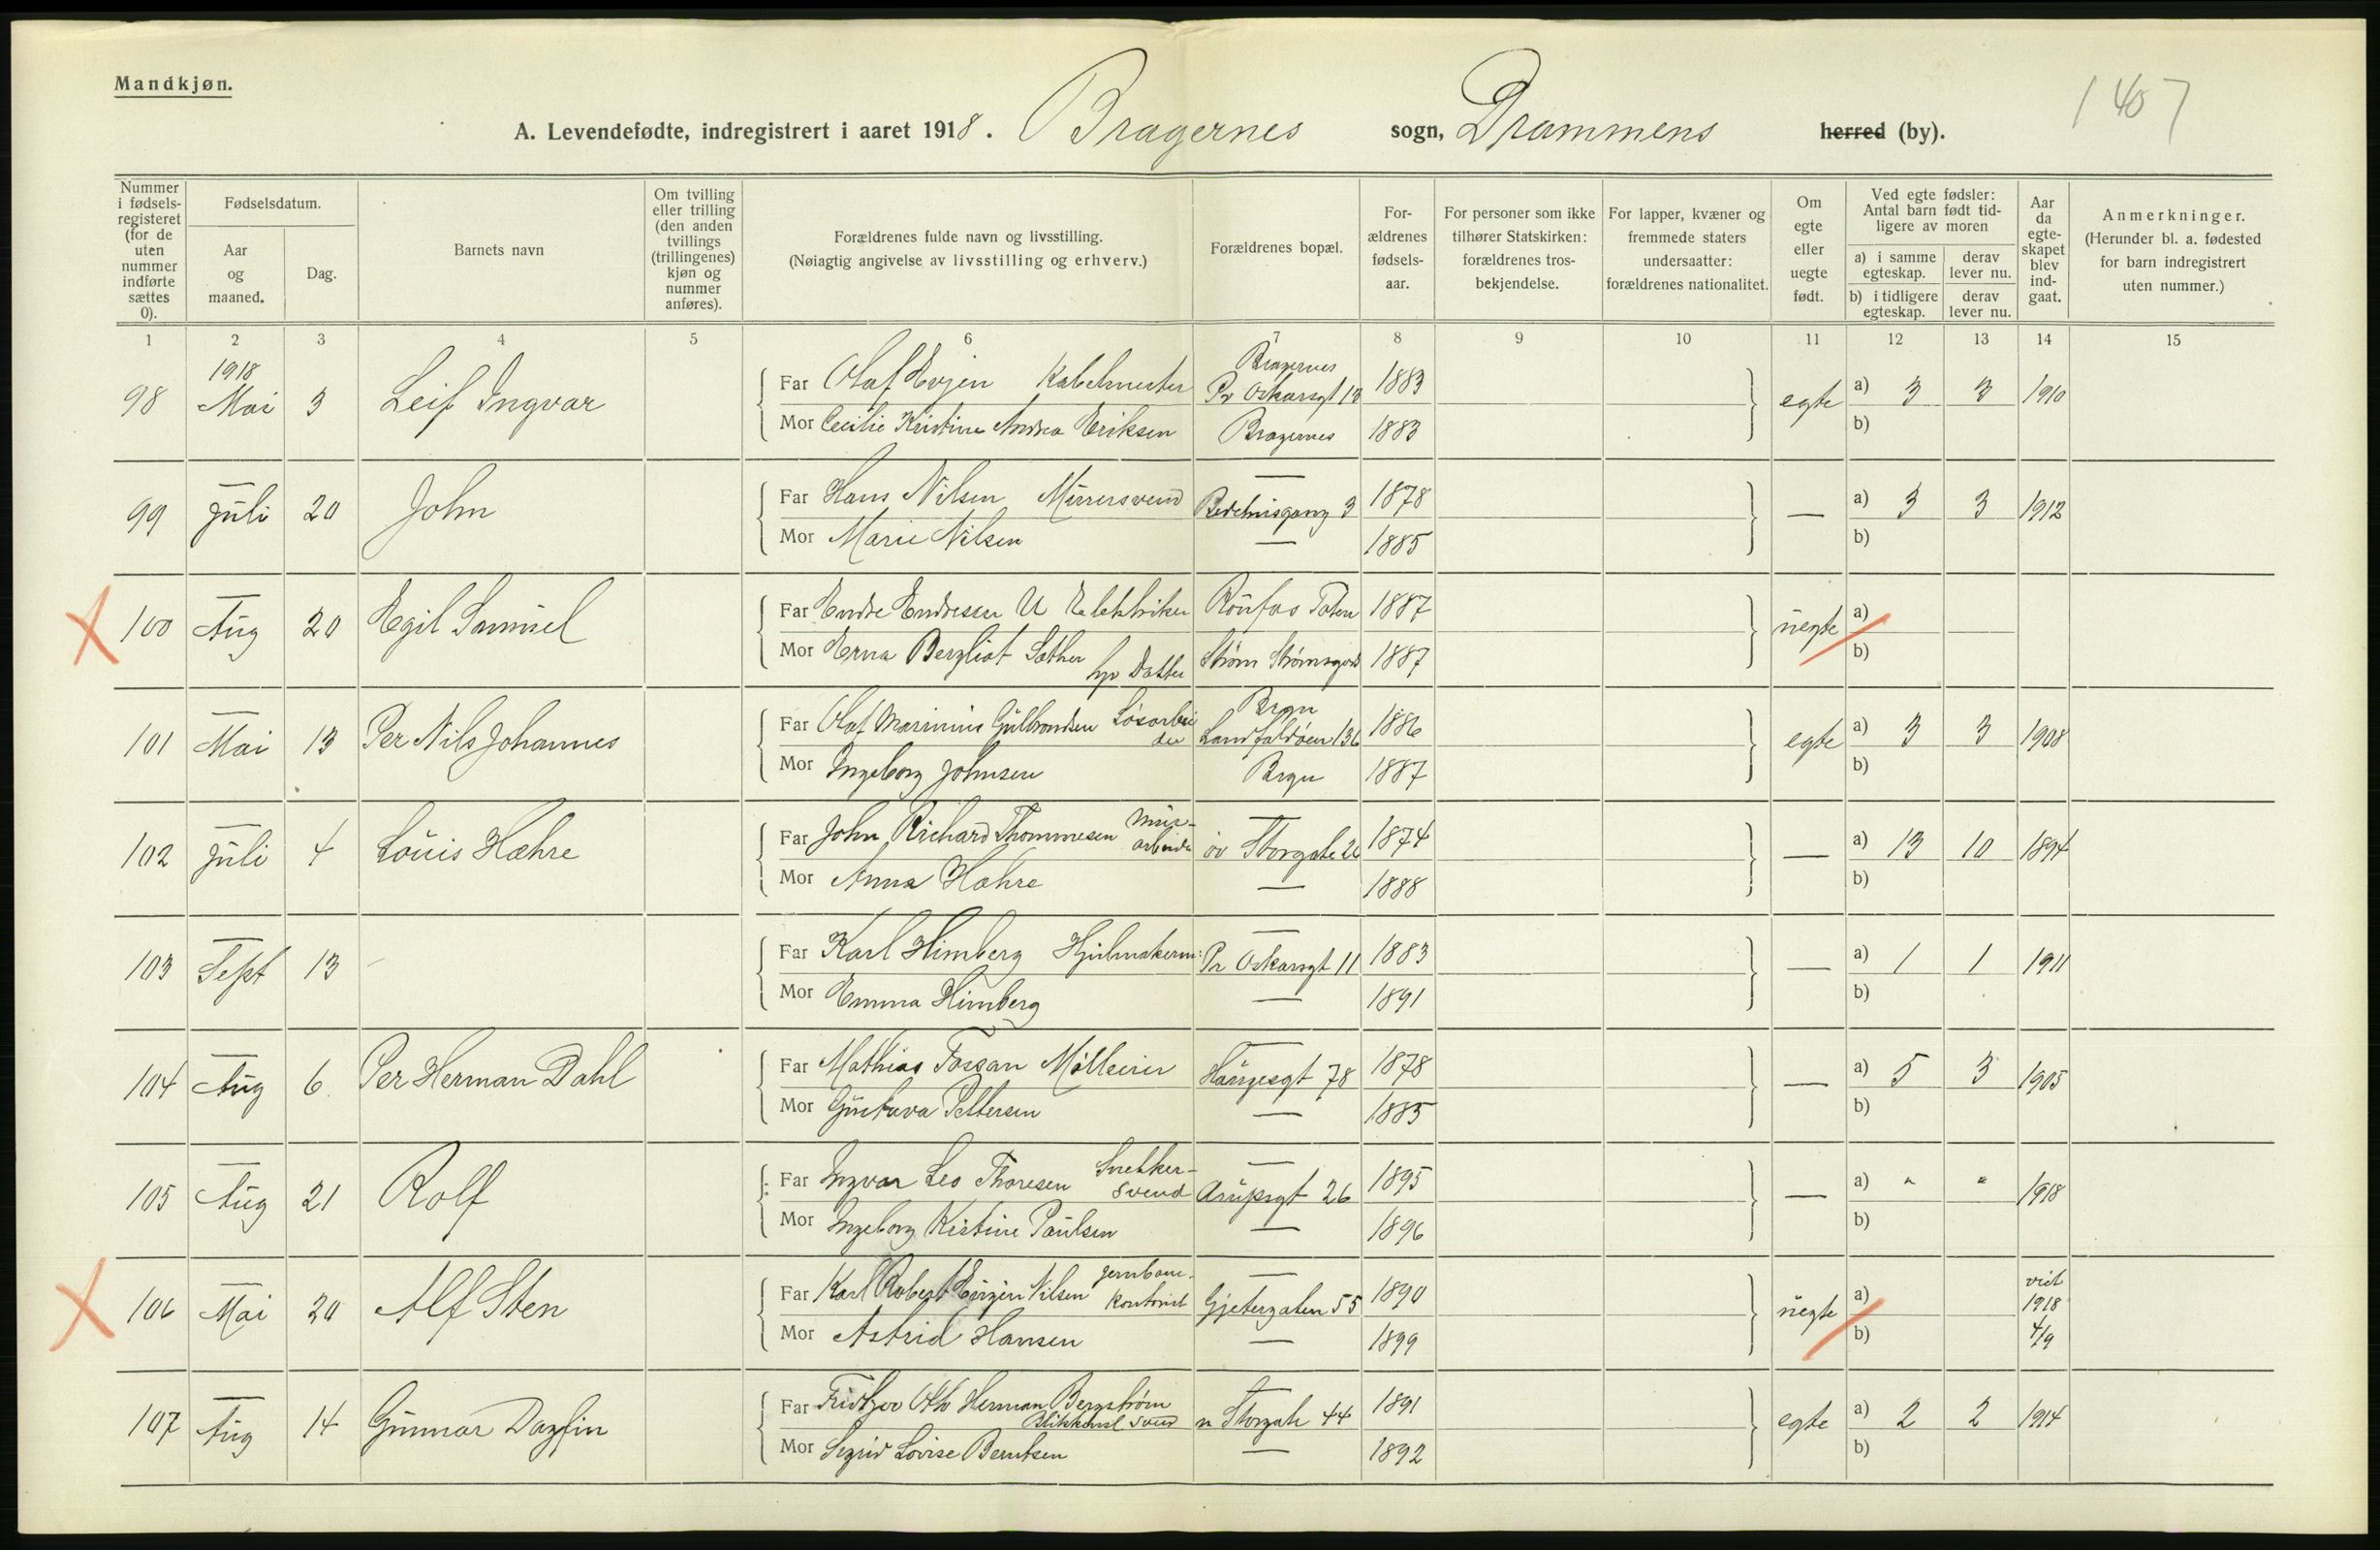 Mandkjøn.
1407
A. Levendefødte, indregistrert i aaret 1918. Bragernes sogn, Drammens herred (by).
Nummer i fødsels-registeret (for de uten nummer indførte sættes 0).
Fødselsdatum.
Aar og maaned.
Dag.
Barnets navn
Om tvilling eller trilling (den anden tvillings (trillingenes) kjøn og nummer anføres).
Forældrenes fulde navn og livsstilling.
(Nøiagtig angivelse av livsstilling og erhverv.)
Forældrenes bopæl.
For-ældrenes fødsels-aar.
For personer som ikke tilhører Statskirken: forældrenes tros-bekjendelse.
For lapper, kvæner og fremmede staters undersaatter: forældrenes nationalitet.
Om egte eller uegte født.
Ved egte fødsler: Antal barn født tid-ligere av moren
a) i samme egteskap. derav lever nu.
b) i tidligere egteskap. derav lever nu.
Aar da egte-skapet blev ind-gaat.
Anmerkninger.
(Herunder bl. a. fødested for barn indregistrert uten nummer.)
1 2 3 4 5 6 7 8 9 10 11 12 13 14 15
1918 Bragernes
98 Mai 3 Leif Ingvar Far Olaf Evjen Kabelmester Pr Oskarsgt 13 1883 egte a) 3 3 1910
Mor Cecilie Kristine Andrea Eriksen Bragernes 1883 b)
99 Juli 20 John Far Hans Nilsen Murersvend Bedehusgang 3 1878 — a) 3 3 1912
Mor Marie Nilsen — 1885 b)
100 Aug 20 Egil Samuel Far Endre Endresen U Elektriker Raufos Toten 1887 uegte a)
Mor Erna Bergliot Sæther hp Datter Strøm Strømsgod 1887 b)
Brgn
101 Mai 13 Per Nils Johannes Far Olaf Marinius Gulbrandsen Løsarbeider Landfaldøen 136 1886 egte a) 3 3 1908
Mor Ingeborg Johnsen Brgn 1887 b)
102 Juli 4 Louis Hæhre Far John Richard Thommesen Mur-arbeider øv Storgate 26 1874 — a) 13 10 1894
Mor Anna Hæhre — 1888 b)
103 Sept 13 — Far Karl Himberg Hjulmakerm: Pr Oskarsgt 11 1883 — a) 1 1 1911
Mor Emma Himberg — 1891 b)
104 Aug 6 Per Herman Dahl Far Mathias Fossan Mølleier Haugesgt 78 1878 — a) 5 3 1905
Mor Gustava Pettersen — 1885 b)
105 Aug 21 Rolf Far Ingvar Leo Thoresen Snekker-svend Arupsgt 26 1895 — a) " " 1918
Mor Ingeborg Kristine Paulsen — 1896 b)
106 Mai 20 Alf Sten Far Karl Robert Eugen Nilsen Jernbane-kontorist Gjetergaten 55 1890 uegte a) viet 1918 4/9
Mor Astrid Hansen — 1899 b)
107 Aug 14 Gunnar Dagfin Far Fridtjov Otto Herman Bergstrøm Blikkensl svend n Storgate 44 1891 egte a) 2 2 1914
Mor Sigrid Lovise Berntsen — 1892 b)